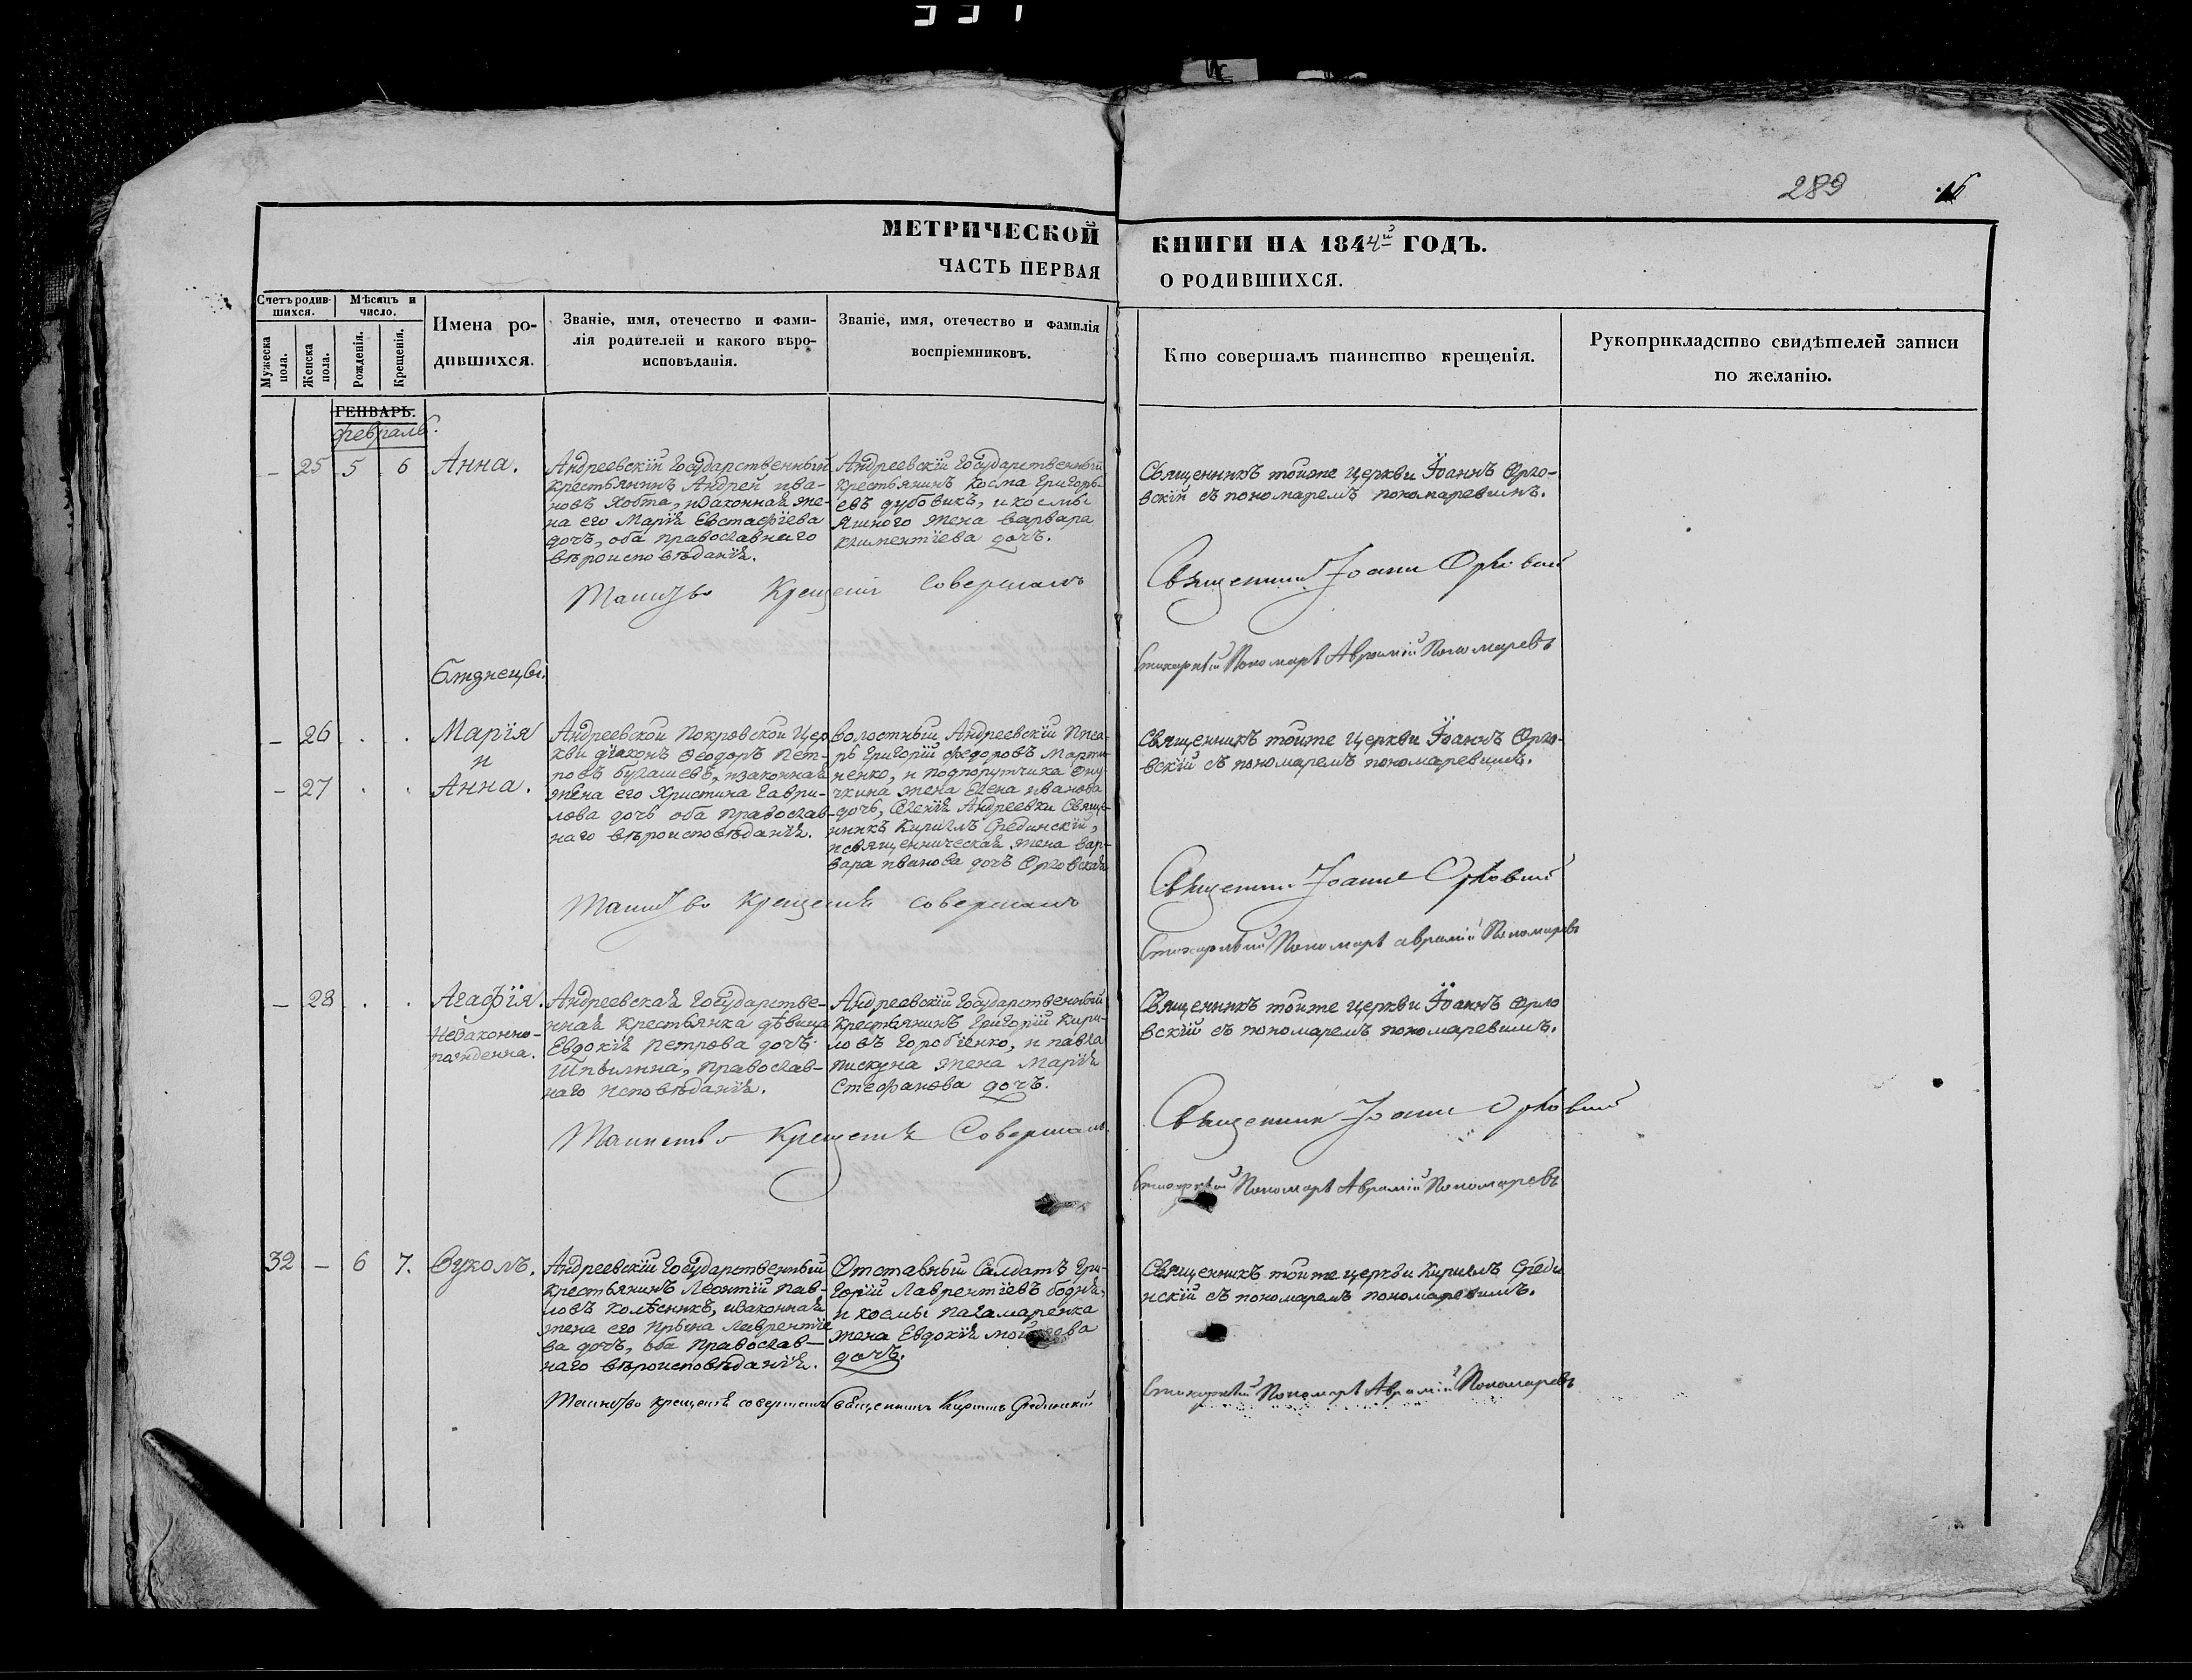 289
МЕТРИЧЕСКОЙ
КНИГИ НА 1844й ГОДЪ.
ЧАСТЬ ПЕРВАЯ
О РОДИВШИХСЯ.
Счетъ родив-
шихся.
Мужеска
пола.
Женска
пола.
Мѣсяцъ и
число.
Рожденія.
Крещенія.
Имена ро-
дившихся.
Званіе, имя, отечество и фами-
лія родителей и какого вѣро-
исповѣданія.
Званіе, имя, отечество и фамилія
воспріемниковъ.
Кто совершалъ таинство крещенія.
Рукоприкладство свидѣтелей записи
по желанію.
ГЕНВАРЬ.
февраль.
– 25 5 6 Анна.
Андреевскїй Государственный
крестьянинъ Андрей ива-
новъ Хобта, изаконная же-
на его Марїя Евстафїева
дочъ, оба православнаго
вѣроисповѣданїя.
Андреевскїй Государственный
крестьянинъ Косма Григорь-
евъ дубовикъ, и космы
жена варвара
климентїева дочъ.
Священникъ тойже церкви Їоаннъ Орло-
вскїй съ пономаремъ пономаревимъ.
Таинство Крещенія Совершалъ
Священникъ Іоаннъ Орловский
Стихарный Пономарь Аврамій Пономаревъ
близнецы.
– 26 . . Марїя
и
– 27 . . Анна.
Андреевской Покровской Цер-
кви дїаконъ Феодоръ Пет-
ровъ булашевъ, изаконная
жена его Христина Гаври-
лова дочь оба православ-
наго вѣроисповѣданїя.
Волостный Андреевскїй Писа-
рь Григорїй Федоровъ Марти-
ненко, и подпорутчика Ону
чкина жена Елена иванова
дочь, Селенїя Андреевки Свяще-
нникъ Кирилъ Срединскїй,
исвященническая жена вар-
вара иванова дочъ Орловская
Священникъ тойже церкви Їоаннъ Орло-
вскїй съ пономаремъ пономаревимъ.
Таинство Крещенія совершалъ
Священникъ Іоаннъ Орловский
Стихарный Пономарь аврамій Пономаревъ
– 28 . . Агафїя.
Незаконно-
рожденна.
Андреевская Государстве-
нная крестьянка дѣвица
Евдокїя Петрова дочъ
Шпѣлина, православ-
наго исповѣданїя.
Андреевскїй Государственный
крестьянинъ Григорїй Кири-
ловъ Горобїенко, и павла
пискуна жена Марїя
Стефанова дочъ.
Священникъ тойже церкви Їоаннъ Орло
вскїй съ пономаремъ пономаревимъ.
Таинство Крещенія Совершалъ
Священникъ Іоаннъ Орловский
Стихарный Пономарь Аврамій Пономаревъ
32 – 6 7. Вуколъ.
Андреевскїй Государственный
крестьянинъ Леонтїй Пав-
ловъ колѣсникъ, изаконная
жена его Ирына Лаврентїе
ва дочъ, оба православ-
наго вѣроисповѣданїя.
Отставный Салдатъ Гри-
горїй Лаврентїевъ бодня,
и космы паламаренка
жена Евдокїя Мойсеева
дочъ.
Священникъ тойже церкви Кирилъ Среди
нскїй съ пономаремъ пономаревимъ.
Таинство крещенія совершалъ Священникъ Кирилъ Срединскій
Стихарный Пономарь Аврамій Пономаревъ